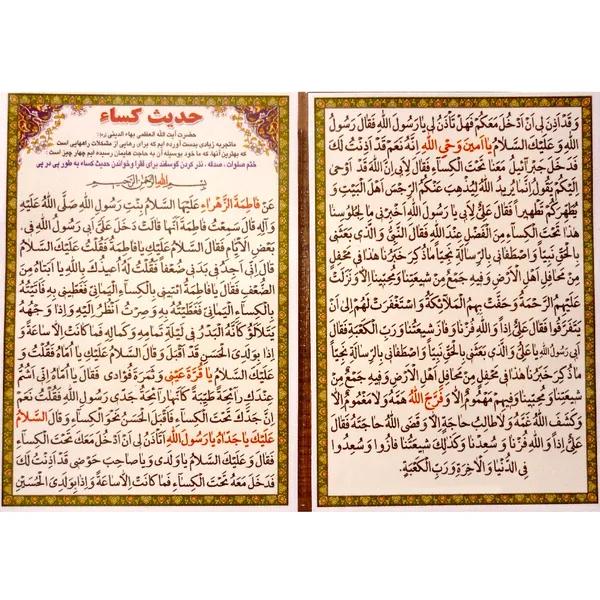 حدیث کساء
حضرت آیت الله العظمی بهاء الدینی (ره):
ماتجربه زیادی بدست آورده ایم که برای رهایی از مشکلات راههایی است
که بهترین آنها، که ما خود بوسیله آن به حاجت هایمان رسیده ایم چهار چیز است
ختم صلوات ، صدقه ، نذر کردن گوسفند برای فقرا وخواندن حدیث کساء به طور پی در پی
بِسْمِ اللهِ الرَّحْمٰنِ الرَّحیمِ
عَنْ فاطِمَةَ الزَّهْراءِ عَلَیْهَا السَّلامُ بِنْتِ رَسُولِ اللهِ صَلَّی اللهُ عَلَیْهِ
وَ آلِهِ قالَ سَمِعْتُ فاطِمَةَ اَنَّها قالَتْ دَخَلَ عَلَیَّ اَبی رَسُولُ اللهِ فی
بَعْضِ الْاَیّامِ فَقالَ السَّلامُ عَلَیْکِ یا فاطِمَةُ فَقُلْتُ عَلَیْکَ السَّلامُ
قالَ اِنّی اَجِدُ فی بَدَنی ضُعْفاً فَقُلْتُ لَهُ اُعیذُکَ بِاللهِ یا اَبَتاهُ مِنَ
الضُّعْفِ فَقالَ یا فاطِمَةُ ائْتینی بِالْکِساءِ الْیَمانی فَغَطّینی بِهِ فَاَتَیْتُهُ
بِالْکِساءِ الْیَمانی فَغَطَّیْتُهُ بِهِ وَ صِرْتُ اَنْظُرُ اِلَیْهِ وَ اِذا وَجْهُهُ
یَتَلَأْلَؤُ کَاَنَّهُ الْبَدْرُ فی لَیْلَةِ تَمامِهِ وَ کَمالِهِ فَما کانَتْ اِلاّ ساعَةً وَ
اِذا بِوَلَدِیَ الْحَسَنِ قَدْ اَقْبَلَ وَ قالَ السَّلامُ عَلَیْکِ یا اُمّاهُ فَقُلْتُ وَ
عَلَیْکَ السَّلامُ یا قُرَّةَ عَیْنی وَ ثَمَرَةَ فُؤادی فَقالَ یا اُمّاهُ اِنّی اَشَمُّ
عِنْدَکِ رائِحَةً طَیِّبَةً کَاَنَّها رائِحَةُ جَدّی رَسُولِ اللهِ فَقُلْتُ نَعَمْ
اِنَّ جَدَّکَ تَحْتَ الْکِساءِ فَاَقْبَلَ الْحَسَنُ نَحْوَ الْکِساءِ وَ قالَ السَّلامُ
عَلَیْکَ یا جَدّاهُ یا رَسُولَ اللهِ اَتَأْذَنُ لی اَنْ اَدْخُلَ مَعَکَ تَحْتَ الْکِساءِ
فَقالَ وَ عَلَیْکَ السَّلامُ یا وَلَدی وَ یا صاحِبَ حَوْضی قَدْ اَذِنْتُ لَکَ
فَدَخَلَ مَعَهُ تَحْتَ الْکِساءِ فَما کانَتْ اِلاّ ساعَةً وَ اِذا بِوَلَدِیَ الْحُسَیْنِ
وَ قَدْ اَذِنَ لی اَنْ اَدْخُلَ مَعَکُمْ فَهَلْ تَأْذَنُ لی یا رَسُولَ اللهِ فَقالَ رَسُولُ
اللهِ وَ عَلَیْکَ السَّلامُ یا اَمینَ وَحْیِ اللهِ اِنَّهُ نَعَمْ قَدْ اَذِنْتُ لَکَ
فَدَخَلَ جَبْرائیلُ مَعَنا تَحْتَ الْکِساءِ فَقالَ لِاَبی اِنَّ اللهَ قَدْ اَوْحی
اِلَیْکُمْ یَقُولُ اِنَّما یُریدُ اللهُ لِیُذْهِبَ عَنْکُمُ الرِّجْسَ اَهْلَ الْبَیْتِ وَ
یُطَهِّرَکُمْ تَطْهیراً فَقالَ عَلِیٌّ لِاَبی یا رَسُولَ اللهِ اَخْبِرْنی ما لِجُلُوسِنا
هذا تَحْتَ الْکِساءِ مِنَ الْفَضْلِ عِنْدَ اللهِ فَقالَ النَّبِیُّ وَ الَّذی بَعَثَنی
بِالْحَقِّ نَبِیّاً وَ اصْطَفانی بِالرِّسالَةِ نَجِیّاً ما ذُکِرَ خَبَرُنا هذا فی مَحْفِلٍ
مِنْ مَحافِلِ اَهْلِ الْاَرْضِ وَ فیهِ جَمْعٌ مِنْ شیعَتِنا وَ مُحِبّینا اِلاّ وَ نَزَلَتْ
عَلَیْهِمُ الرَّحْمَةُ وَ حَفَّتْ بِهِمُ الْمَلائِکَةُ وَ اسْتَغْفَرَتْ لَهُمْ اِلی اَنْ
یَتَفَرَّقُوا فَقالَ عَلِیٌّ اِذاً وَ اللهِ فُزْنا وَ فازَ شیعَتُنا وَ رَبِّ الْکَعْبَةِ فَقالَ
اَبی رَسُولُ اللهِ یا عَلِیُّ وَ الَّذی بَعَثَنی بِالْحَقِّ نَبِیّاً وَ اصْطَفانی بِالرِّسالَةِ نَجِیّاً
ما ذُکِرَ خَبَرُنا هذا فی مَحْفِلٍ مِنْ مَحافِلِ اَهْلِ الْاَرْضِ وَ فیهِ جَمْعٌ مِنْ
شیعَتِنا وَ مُحِبّینا وَ فیهِمْ مَهْمُومٌ اِلاّ وَ فَرَّجَ اللهُ هَمَّهُ وَ لا مَغْمُومٌ اِلاّ
وَ کَشَفَ اللهُ غَمَّهُ وَ لا طالِبُ حاجَةٍ اِلاّ وَ قَضَی اللهُ حاجَتَهُ فَقالَ
عَلِیٌّ اِذاً وَ اللهِ فُزْنا وَ سُعِدْنا وَ کَذٰلِکَ شیعَتُنا فازُوا وَ سُعِدُوا
فِی الدُّنْیا وَ الْاخِرَةِ وَ رَبِّ الْکَعْبَةِ.